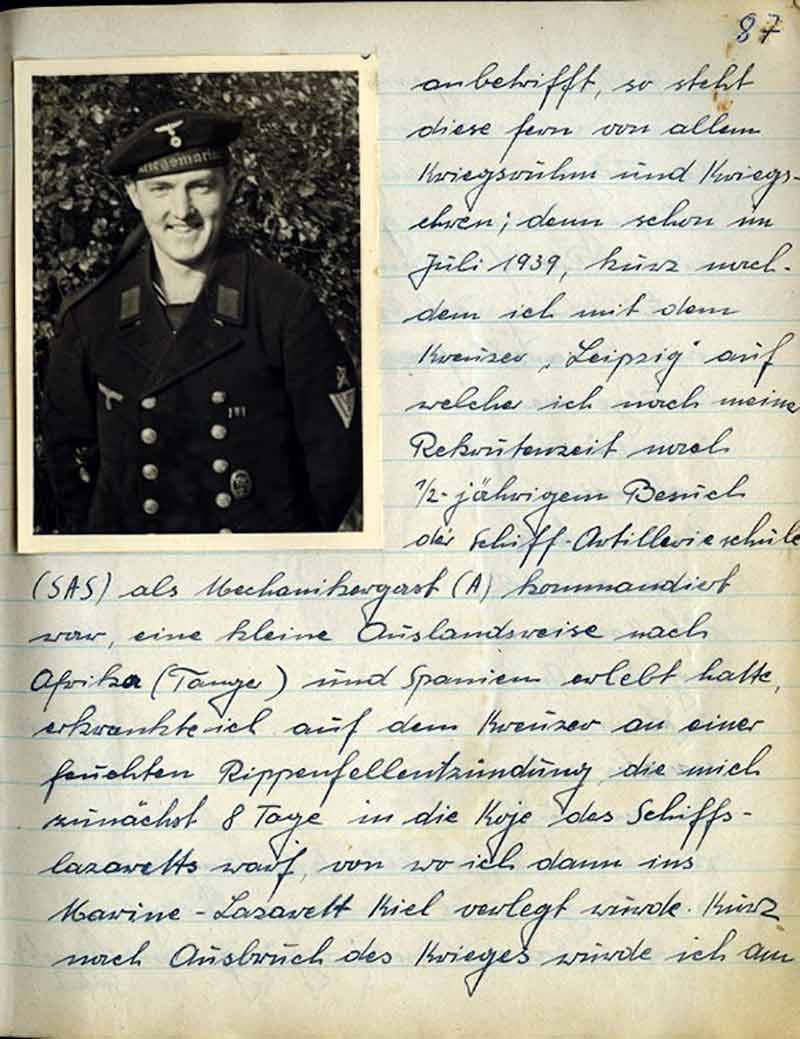 87
Kriegsmarine
anbetrifft, so steht
diese fern von allem
Kriegsruhm und Kriegs-
ehren; denn schon im
Juli 1939, kurz nach-
dem ich mit dem
Kreuzer „Leipzig" auf
welcher ich nach meine
Rekrutenzeit nach
1/2-jährigem Besuch
der Schiff-Artillerieschule
(SAS) als Mechanikergast (A) kommandiert
war, eine kleine Auslandsreise nach
Afrika (Tanger) und Spanien erlebt hatte,
erkrankte ich auf dem Kreuzer an einer
feuchten Rippenfellentzündung, die mich
zunächst 8 Tage in die Koje des Schiffs-
lazaretts warf, von wo ich dann ins
Marine-Lazarett Kiel verlegt wurde. Kurz
nach Ausbruch des Krieges wurde ich am